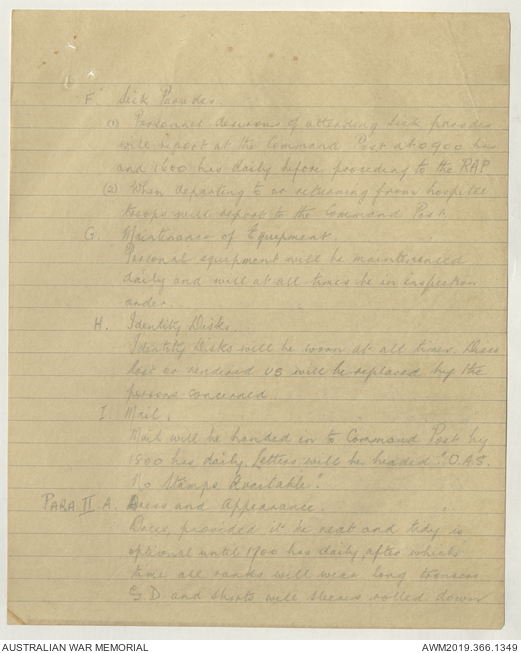 F. Sick Parades.
(1) Personnel desirous of attending Sick parades
will report at the Command Post at 0900 hrs
and 1600 hrs daily before proceeding to the RAP
(2) When departing to or returning from hospital
troops will report to the Command Post.
G. Maintenance of Equipment.
Personal equipment will be maintenanced
daily and will at all times be in inspection
order.
H. Identity Disks.
Identity Disks will be worn at all times. Discs
lost or rendered US will be replaced by the
persons concerned.
I. Mail.
Mail will be handed in to Command Post by
1800 hrs daily. Letters will be headed "O.A.S.
No Stamps Available".
PARA II A. Dress and Appearance.
Dress, provided it be neat and tidy is
optional until 1900 hrs daily, after which
time all ranks will wear long trousers
G.D. and shirts will sleeves rolled down
AUSTRALIAN WAR MEMORIAL
AWM2019.366.1349